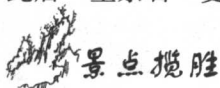 景点揽胜